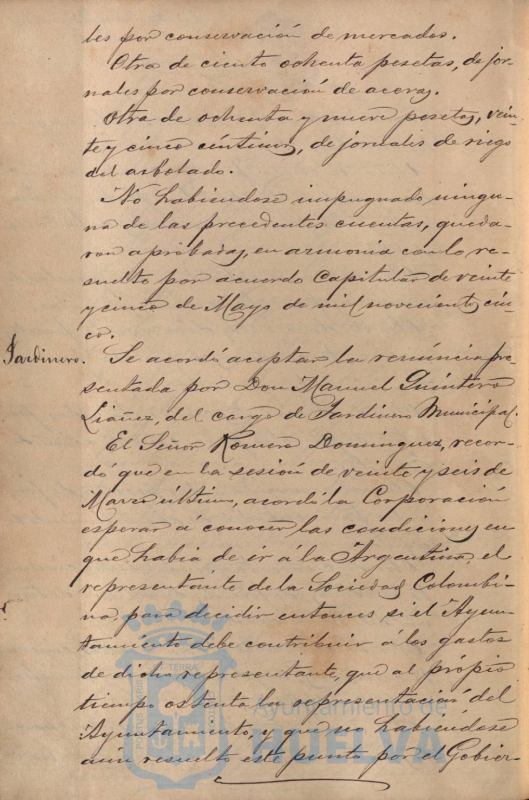 les por conservación de mercados.
Otra de ciento ochenta pesetas, de jor-
nales por conservación de aceras.
Otra de ochenta y nueve pesetas, vein-
te y cinco céntimos, de jornales de riego
del arbolado.
No habiéndose impugnado ningu-
na de las precedentes cuentas, queda-
ron aprobadas, en armonia con lo re-
suelto por acuerdo Capitular de veinte
y cinco de Mayo de mil novecientos cin-
co.
Jardinero.
Se acordó aceptar la renúncia pre-
sentada por Don Manuel Quintero
Liañez, del cargo de Jardinero Municipal.
El Señor Romero Dominguez, recor-
dó que en la sesión de veinte y seis de
Marzo último, acordó la Corporación
esperar á conocer las condiciones en
que habia de ir á la Argentina, el
representante de la Sociedad Colombi-
na para decidir entonces si el Ayun-
tamiento debe contribuir á los gastos
de dicho representante, que al própio
tiempo ostenta la representación del
Ayuntamiento, y que no habiendose
aún resuelto este punto por el Gobier-
Ayuntamiento de
HUELVA